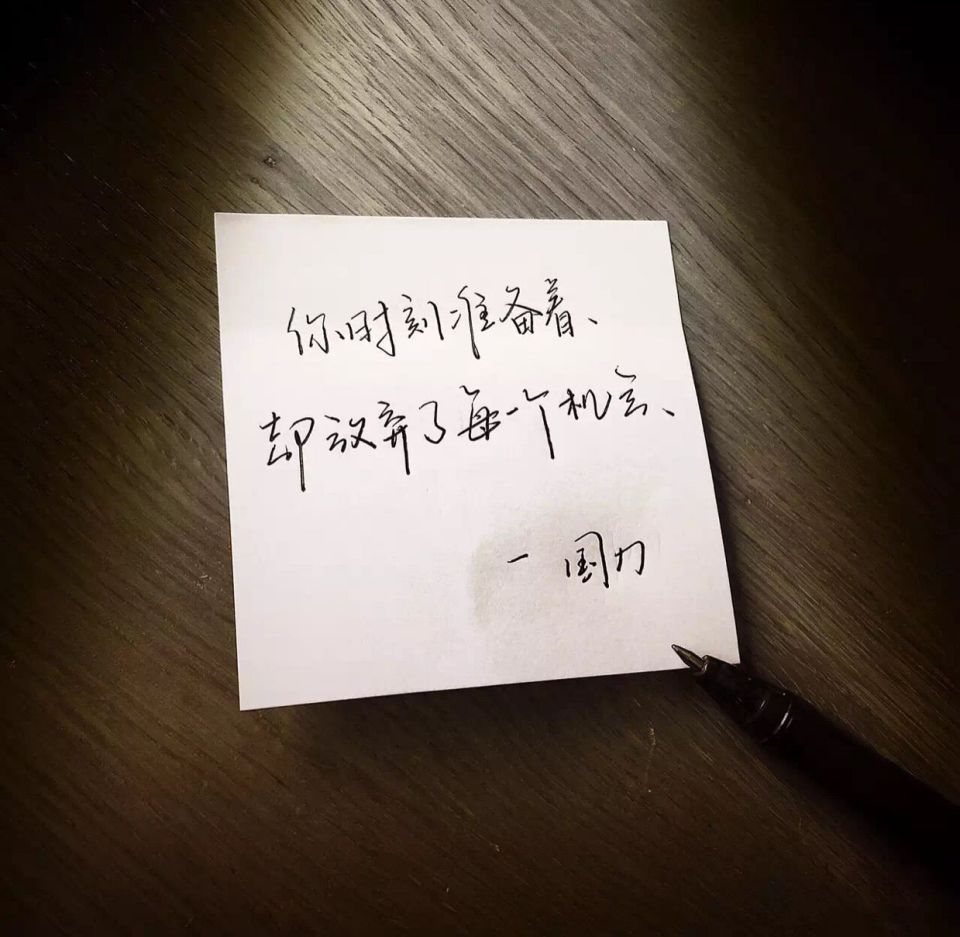 你时刻准备着、
却放弃了每一个机会、
一 国力